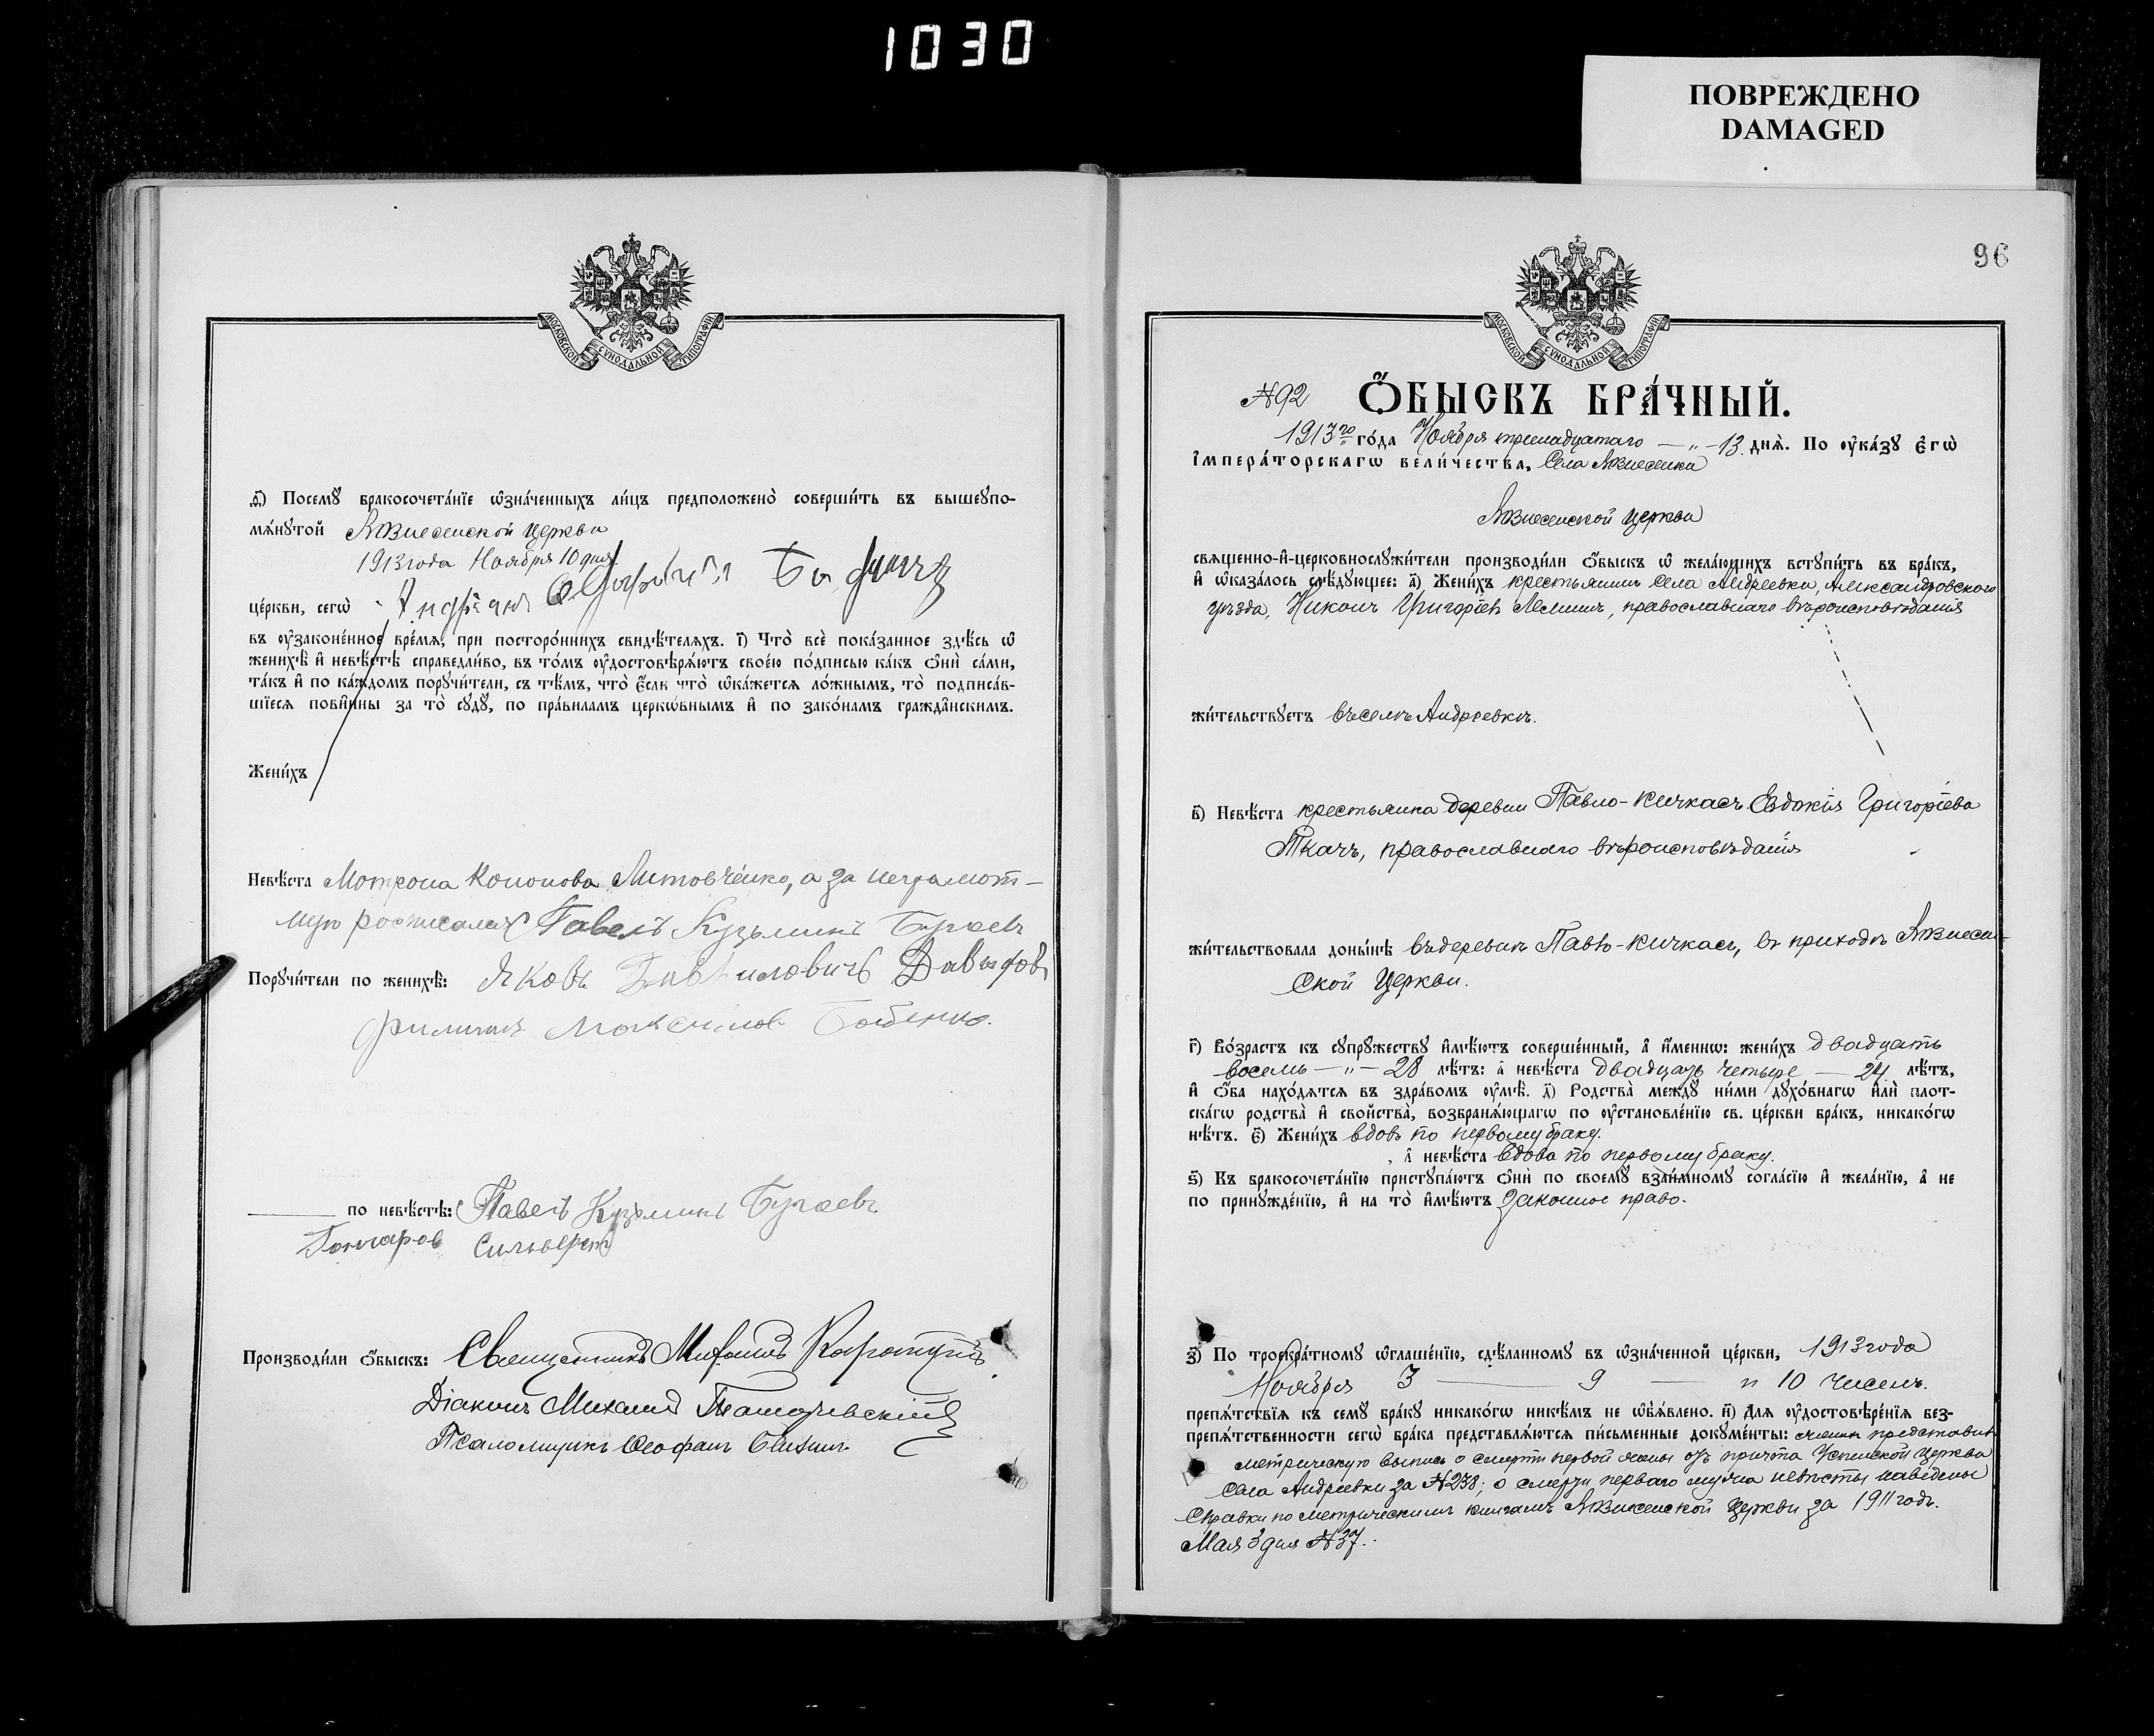 1030
ПОВРЕЖДЕНО
DAMAGED
МОСКОВСКОЙ СѴНОДАЛЬНОЙ ТИПОГРАФІИ
Ѳ҃) Посемꙋ бракосочета́нїе ѡ҆зна́ченныхъ ли́цъ предположено̀ соверши́ть въ вышеꙋпо-
мѧ́нꙋтой Язиеенской Церкви
1913 года Ноября 10 дня
це́ркви, сегѡ̀
въ ᲂу҆зако́ненное вре́мѧ, при посторо́ннихъ свидѣ́телѧхъ. і҃) Что̀ всѐ пока́занное здѣ́сь ѡ҆
женихѣ̀ и҆ невѣ́стѣ справедли́во, въ то́мъ ᲂу҆достовѣрѧ́ютъ свое́ю по́дписью ка́къ ѻ҆нѝ са́ми,
та́къ и҆ по ка́ждомъ порꙋчи́тели, съ тѣ́мъ, что̀ є҆́сли что̀ ѡ҆ка́жетсѧ ло́жнымъ, то̀ подписа́в-
шїесѧ пови́нны за то̀ сꙋдꙋ̀, по пра́виламъ церко́внымъ и҆ по зако́намъ гражда́нскимъ.
Жени́хъ
Невѣ́ста Мотрона Кононова Литовченко, а за неграмот-
ную росписался Павелъ Кузьминъ Бугаевъ
Порꙋчи́тели по женихѣ̀: Яковъ Гавриловичъ Давыдовъ
Филиппъ Максимов Бабенко.
по невѣ́стѣ: Павелъ Кузьминъ Бугаевъ
Гончаров Сильвестр
Производи́ли ѻ҆́быскъ: Священникъ Михаилъ
Діаконъ Михаилъ
Псаломщикъ Ѳеофанъ
96
МОСКОВСКОЙ СѴНОДАЛЬНОЙ ТИПОГРАФІИ
№ 92 Ѻ҆́БЫСКЪ БРА́ЧНЫЙ.
1913го го́да Ноября тринадцатаго — „ — 13 днѧ̀. По ᲂу҆ка́зꙋ Є҆гѡ̀
І҆мпера́торскагѡ вели́чества, Села
Церкви
свѧщенно-и҆-церковнослꙋжи́тели производи́ли ѻ҆́быскъ ѡ҆ жела́ющихъ встꙋпи́ть въ бра́къ,
и҆ ѡ҆каза́лось слѣ́дꙋющее: а҃) Жени́хъ крестьянинъ села Андреевки, Александровского
уезда, Никонъ Григоріевъ Лемишъ, православнаго вѣроисповѣданія
жи́тельствꙋетъ въ селѣ Андреевкѣ.
в҃) Невѣ́ста крестьянка деревни Павло-Кичкасъ Евдокія Григоріева
Ткачъ, православнаго вѣроисповѣданія
жи́тельствовала доны́нѣ въ деревнѣ Павло-Кичкасъ, въ приходѣ
ской Церкви.
г҃) Во́зрастъ къ сꙋпрꙋ́жествꙋ и҆мѣ́ютъ соверше́нный, а҆ и҆́меннѡ: жени́хъ двадцать
восемь — „ — 28 лѣ́тъ: а҆ невѣ́ста двадцать четыре — 24 лѣ́тъ,
и҆ ѻ҆́ба нахо́дѧтсѧ въ здра́вомъ ᲂу҆мѣ̀. д҃) Родства̀ междꙋ̀ ни́ми дꙋхо́внагѡ и҆лѝ плот-
ска́гѡ родства̀ и҆ сво́йства, возбранѧ́ющагѡ по ᲂу҆становле́нїю св. це́ркви бра́къ, никако́гѡ
нѣ́тъ. є҃) Жени́хъ вдовъ по первому браку.
а҆ невѣ́ста вдова по первому браку.
ѕ҃) Къ бракосочета́нїю пристꙋпа́ютъ ѻ҆нѝ по своемꙋ̀ взаи́мномꙋ согла́сїю и҆ жела́нїю, а҆ не
по принꙋжде́нїю, и҆ на то̀ и҆мѣ́ютъ законное право.
з҃) По троекра́тномꙋ ѡ҆глаше́нїю, сдѣ́ланномꙋ въ ѡ҆зна́ченной це́ркви, 1913 года
Ноября 3 — 9 — и 10 чиселъ.
препѧ́тствїѧ къ семꙋ̀ бра́кꙋ никако́гѡ никѣ́мъ не ѡ҆б̾ѧ́влено. и҃) Длѧ ᲂу҆достовѣре́нїѧ без-
препѧ́тственности сегѡ̀ бра́ка представлѧ́ютсѧ пи́сьменные докꙋме́нты: женихъ представилъ
метрическую выпись о смерти первой жены отъ причта Успенской Церкви
села Андреевки за № 238; о смерти перваго мужа невѣсты наведены
справки по метрическимъ книгамъ Церкви за 1911 годъ.
Мая 3 дня № 37.